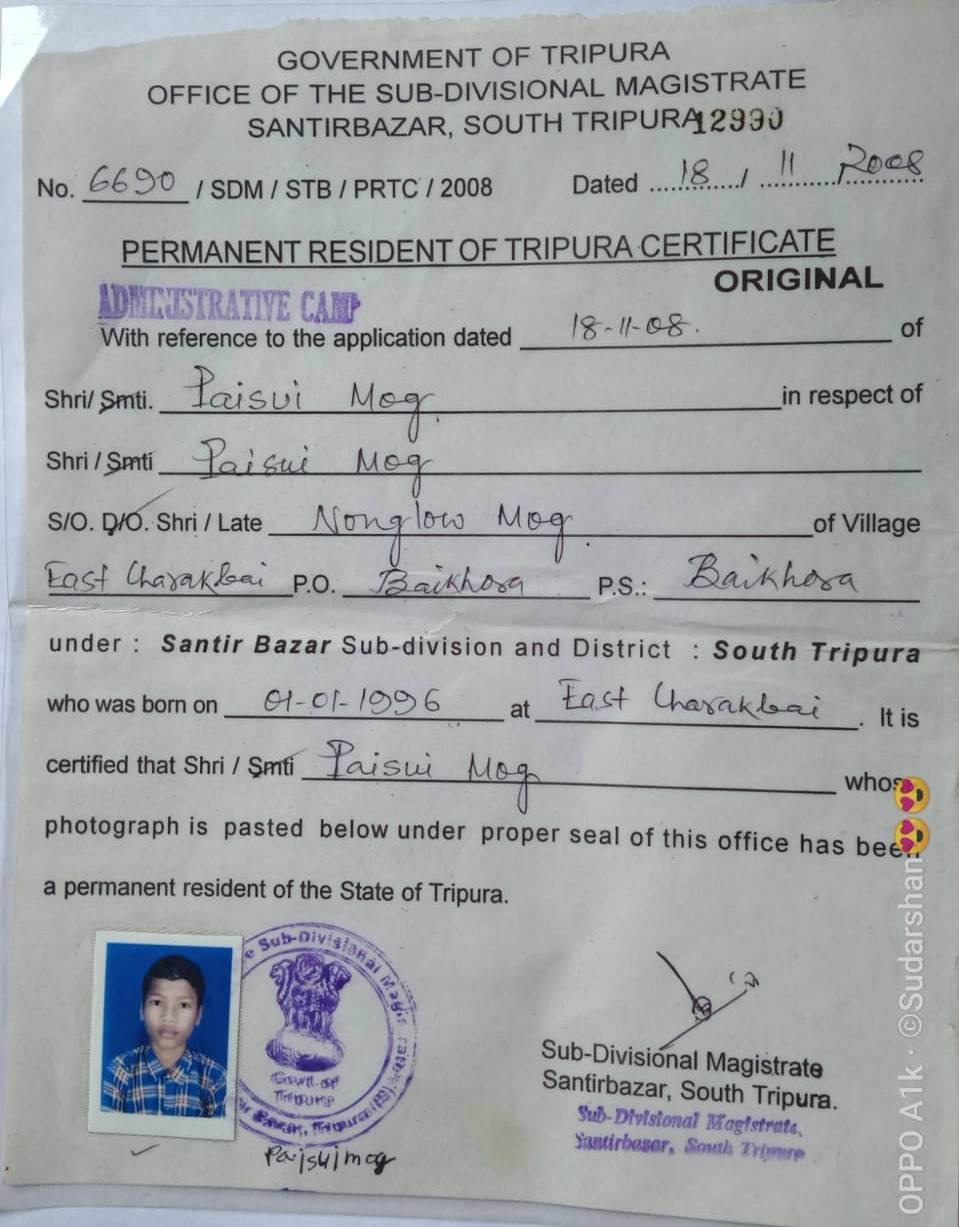 GOVERNMENT OF TRIPURA
OFFICE OF THE SUB-DIVISIONAL MAGISTRATE
SANTIRBAZAR, SOUTH TRIPURA 12990
No. 6690 / SDM / STB / PRTC / 2008 Dated 18 / 11 / 2008
PERMANENT RESIDENT OF TRIPURA CERTIFICATE
ORIGINAL
ADMINISTRATIVE CAMP
With reference to the application dated 18-11-08. of
Shri/ Smti. Paisui Mog. in respect of
Shri / Smti Paisui Mog
S/O. D/O. Shri / Late Nonglow Mog. of Village
East Charakbai P.O. Baikhora P.S.: Baikhora
under : Santir Bazar Sub-division and District : South Tripura
who was born on 01-01-1996 at East Charakbai. It is
certified that Shri / Smti Paisui Mog whos
photograph is pasted below under proper seal of this office has been
a permanent resident of the State of Tripura.
e Sub-Divisional Magistrate
Govt. of
Tripura
Bazar, Tripura (S)
Paisui mog
Sub-Divisional Magistrate
Santirbazar, South Tripura.
Sub-Divisional Magistrate,
Santirbazar, South Tripura
OPPO A1k · ©Sudarshan😍😍